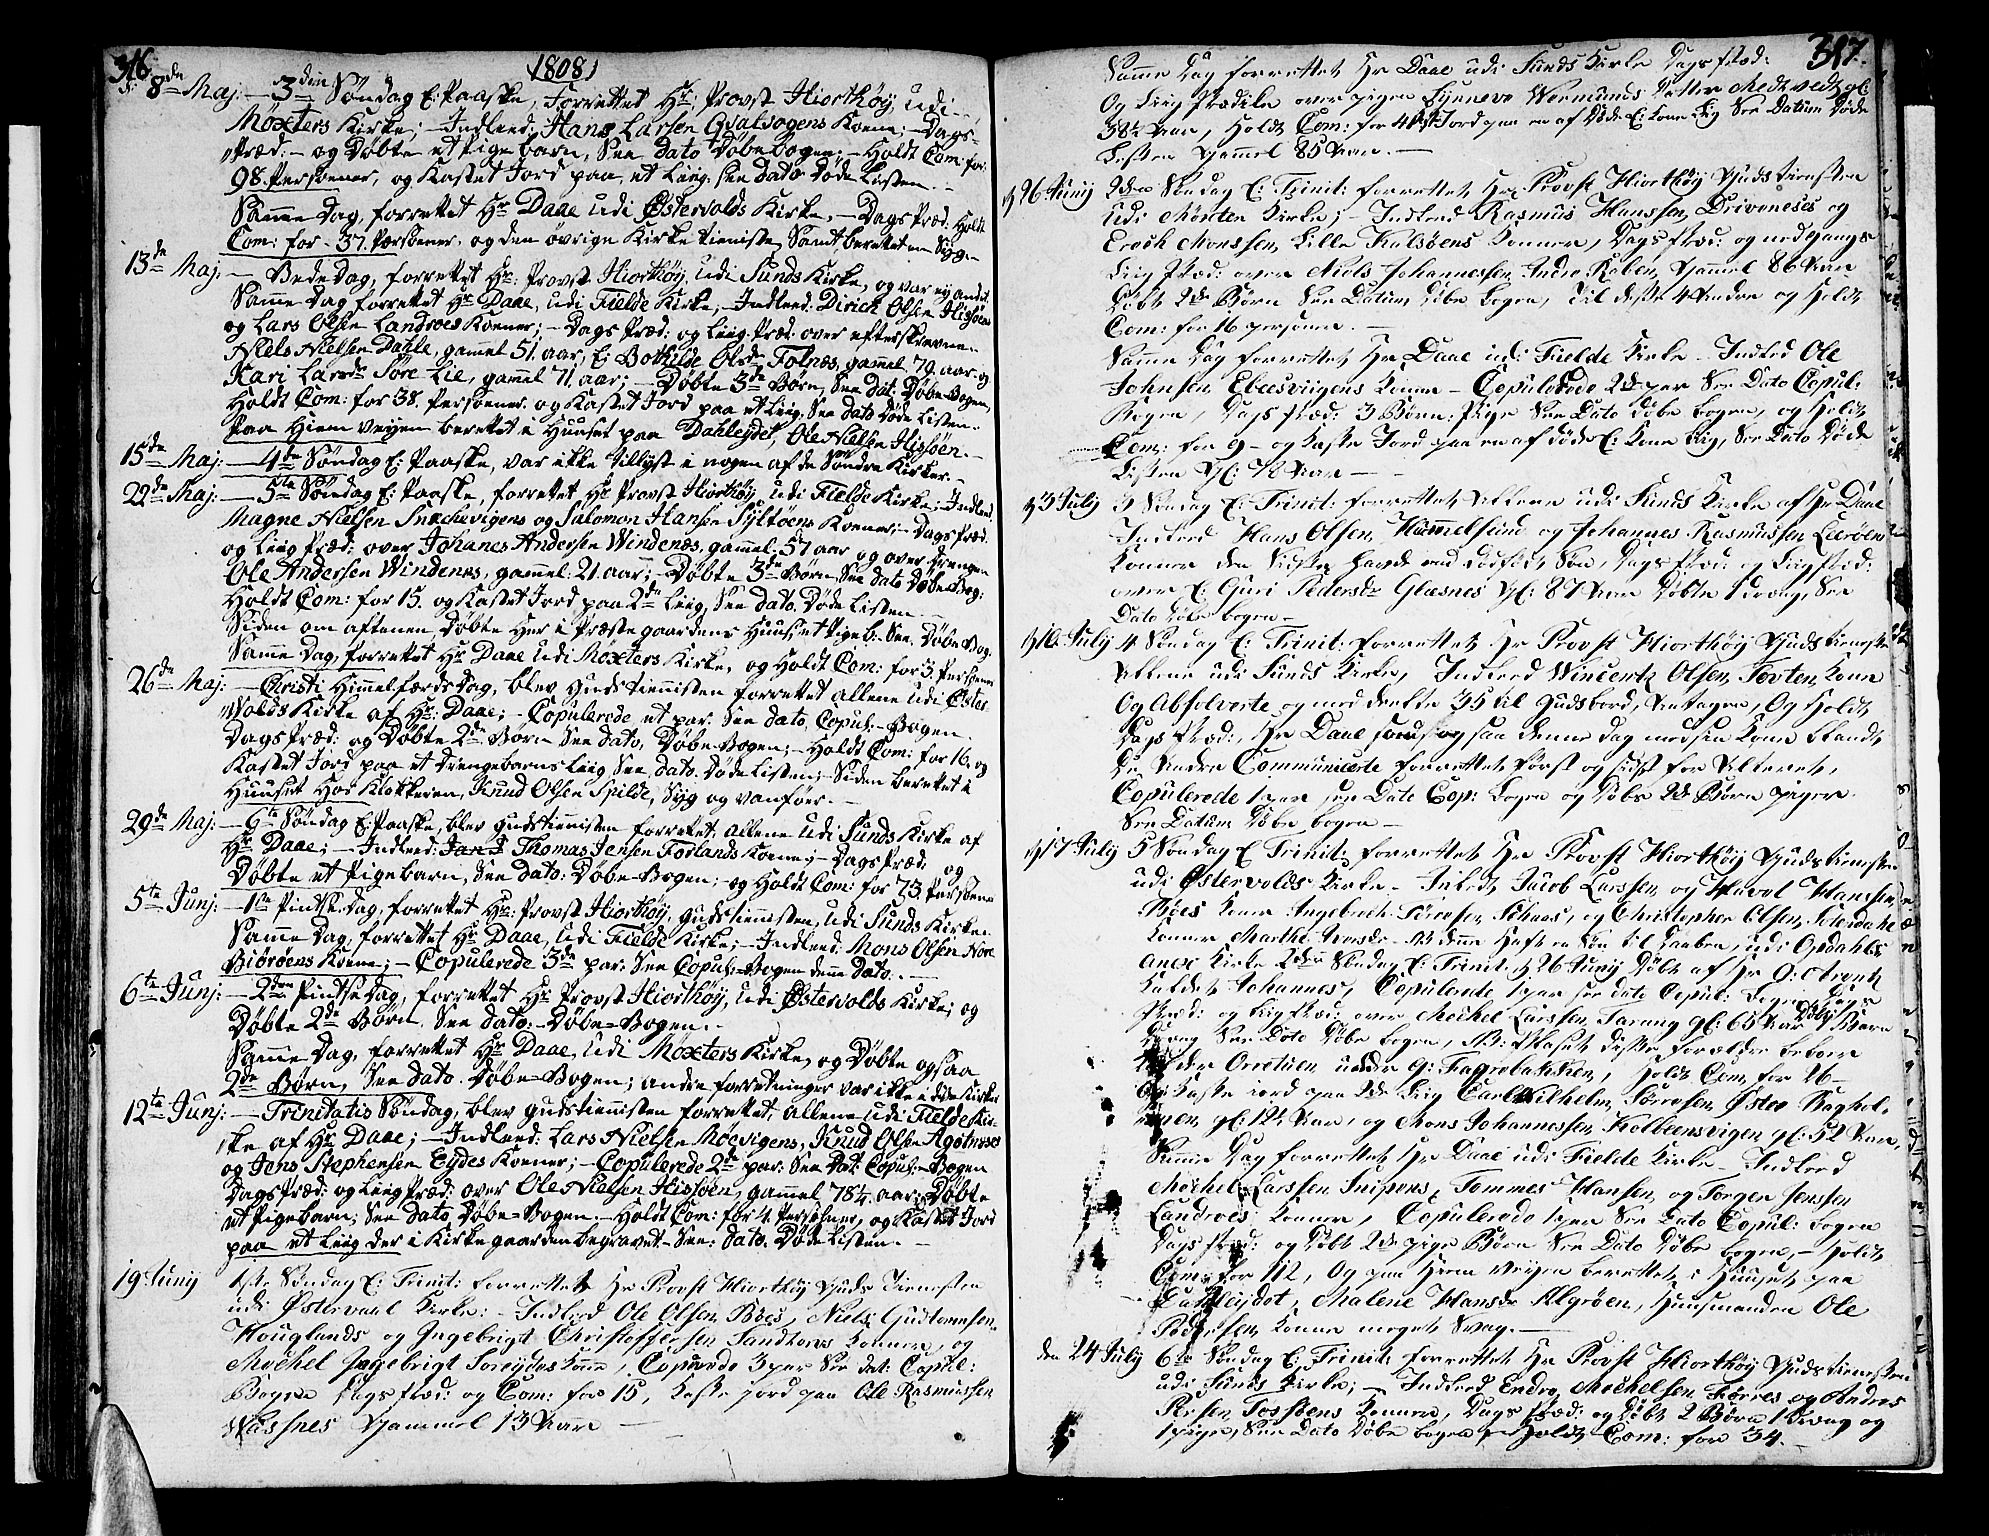 316.
1808
d: 8de Maj: — 3die Søndag E: Paaske, forrettet Hr: Provst Hiorthøy, udi
Møxters Kirke; — Indleed: Hans Larsen Qvalvogens Koene; — Dags-
Præd: — og Døbte et Pigebarn, See dato Døbebogen; — Holdt Com: for
98. Persoener, og Kastet Jord paa et Liig, See dato Døde Listen. —
Samme Dag, forrettet Hr Daae udi Østervolds Kirke, — DagsPræd: Holdt
Com: for 37. Persoener. og den øvrige Kirke tieniste, Samt berettet en Syg. —
13de Maj: — Bededag, forrettet Hr: Provst Hiorthøy, udi Sunds Kirke, og var ej andet.
Samme Dag forrettet Hr Daae, udi Fielde Kirke, — Indleed: Dirich Olsen Hissøen
og Lars Olsen Landroes Koener; — DagsPræd: og LiigPræd: over efterskrevne.
Niels Nielsen Dahle, gammel 51. aar, E: Bothilde Olsdr Toknæs, gammel 79. aar og
Kari Larsdr Søre Lie, gammel 71. aar; — Døbte 3de Børn, See dat: Døbe-Bogen,
Holdt Com: for 38. Persoener. og Kastet Jord paa et Liig. See dato Døde Listen.
Paa Hiem Veyen berettet i Huuset paa Dahleydet, Ole Nielsen Hissøen. —
15de Maj: — 4de Søndag E: Paaske, var ikke tillyst i nogen af de Søndre Kirker. —
22de Maj: — 5te Søndag E: Paaske, forrettet Hr Provst Hiorthøy, udi Fielde Kirke; Indleed
Magne Nielsen Snechevigens og Salomon Hansen Syltøens Koener; — DagsPræd:
og LiigPræd: over Johanes Andersen Windenæs, gammel: 57 aar og over Drengen
Ole Andersen Windenæs, gammel: 21. aar; — Døbte 3de Børn, See dato DøbeBog:
Holdt Com: for 15. og Kastet Jord paa 2de Liig, See dato. Døde Listen —
Siden om aftenen, Døbte Her i Præstegaardens Huus, et Pigeb: See. Døbe Bog.
Samme Dag, forrettet Hr Daae udi Møxters Kirke, og Holdt Com: for 3. Persoener
26de Maj: — Christi Himmelfærds Dag, blev Gudstienisten forrettet allene udi Øster
Wolds Kirke af Hr: Daae; — Copulerede, et par: See dato, Copul: — Bogen.
DagsPræd: og Døbte 2de Børn See dato, Døbe-Bogen; — Holdt Com: for 16. og
Kastet Jord paa et Drengebarns Liig See, dato. Døde Listen; — Siden berettet i
Huuset Hos Klokkeren, Knud Olsen Spilde, Syg og vanføer. —
29de Maj: — 6te Søndag E: Paaske, blev gudstienisten forrettet, allene udi Sunds Kirke af
Hr Daae; — Indleed: Thomas Jensen Forlands Koene; — DagsPræd: og
Døbte et Pigebarn, See dato: Døbe-Bogen; — og Holdt Com: for 73. Persoener
5te Junj: — 1ste PintseDag, forrettet Hr: Provst Hiorthøy, gudstienisten, udi Sunds Kirke.
Samme Dag, forrettet Hr Daae, udi Fielde Kirke; — Indleed: Mons Olsen Nore
Biørøens Koene; — Copulerede 3de par: See Copul:=Bogen denne dato. —
6te Junj: — 2den PintseDag, forrettet Hr Provst Hiorthøy, udi Østervolds Kirke, og
Døbte 2de Børn. See dato: Døbe=Bogen. —
Samme Dag, forrettet Hr Daae, udi Møxters Kirke, og Døbte ogsaa
2de Børn, See dato. Døbe=Bogen; andre forretninger var ikke i dette Kirker
12te Junj: — Trinitatis Søndag, blev gudstienisten forrettet, allene udi Fielde Kir-
ke af Hr Daae; — Indleed: Lars Nielsen Møevigens, Knud Olsen Agotnæses
og Jens Stephensen Eydes Koener; — Copulerede 2de par: See Dat: Copul: Bogen
DagsPræd: og LiigPræd: over Ole Nielsen Hissøen, gammel 78¼. aar: Døbte
et Pigebarn; See dato Døbe=Bogen. — Holdt Com: for 4 Persoener, og Kastet Jord
paa et Liig der i Kirkegaarden begravet — See: dato. Døde Listen. —
19 Junij 1ste Søndag E: Trinit: forrettet Hr Provst Hiorthøy Guds Tienesten
udi Østervaal Kirke: — Indleed Ole Olsen Bøes, Niels Gudtormsen
Houglands og Ingebrigt Christoffersen Sandtores Konner, og
Mochel Ingebrigt Soreydes Kone, Copulerede 3 par See dat: Copul:
Bogen Dags Præd: og Com: for 15, Kaste jord paa Ole Rasmussen
Wassnes Gammel 13 Aar —
317.
Samme Dag forrettet Hr Daae udi Sunds Kirke Dags Præd:
Og Liig Prædike over pigen Synneve Wermunds Datter Medtvedt gl:
38½ Aar, Holdt Com: for 4 Kast Jord paa en af Døde E: Kone Liig See Datum Døde
Listen Gammel 85 Aar. —
d 26 Junij 2den Søndag E: Trinit: forrettet Hr Provst Hiorthøy Gudstienesten
udi Møxter Kirke; — Indleed Rasmus Hanssen Drivoneses og
Eroch Monssen Lille Kalsøens Konner, Dags Præd: og nedgangs
Liig Præd: over Niels Johannessen Indre Røben, Gammel 86 Aar
Døbt 2de Børn See Datum Døbe bogen, og Holdt
Com: for 16 personer. —
Samme Dag forrettet Hr Daae udi Fielde Kirke — Indleed Ole
Johnsen Ebeesviigens Konne — Copulerede 2de par See Dato Copul:
Bogen, Dags Præd: 3 Børn: Pige See Dato Døbe bogen, og Holdt
Com: for 9 — og kaste Jord paa en af døde E: Kone Liig, See Dato Døde
Listen Gl: 78 Aar —
d 3 July 3 Søndag E: Trinit: forrettet Allene udi Sunds Kirke af Hr Daae
Indleed Hans Olsen Hummelsund og Johannes Rasmussen Lerøens
Konner den Sidste havde et dødfødt Søn, Dags Præd: og Liigpræd:
over E: Guri Pedersdr Glæsnes Gl: 87 Aar Døbte 1 dreng, See
Dato Døbe bogen —
d 10 July 4 Søndag E: Trinit: forrettet Hr Provst Hiorthøy Gudstieneste
Allene udi Sunds Kirke, Indleed Wincentz Olsen Toften Kone
Og Absolverte og med dette 35 til Gudsbord, Antagen, Og Holdt
Dags Præd:, Hr Daae
De Andre Communicerte forrettet først og sidst for Alteret,
Copulerede 1 par see Dato Cop: bogen og Døbe 2de Børn piger
See Datum Døbe bogen —
d 17 July 5 Søndag E: Trinit: forrettet Hr Provst Hiorthøy Gudstienesten
udi Østervolds Kirke — Inledt Jacob Larssen, og Havol Hanssen
Bøes Koner og Christopher Olsen
Konner Marthe — til Daaben, udi Opdahls
anex Kirke 2den Søndag E: Trinit: d 26 Junij Døbt af Hr
Kaldet Johannes, Copulerede 1 par see dato Copul: bogen, Dags
Præd: og Liig Præd: over Mochel Larssen Tarang gl: 65 Aar Døbt 1 Barn
Dreng See Dato Døbe bogen,
Holdt Com for 26 —
Og Kaste iord paa 2de Liig Carl Wilhelm
gl: 12½ Aar, og Mons Johannessen Kolbeensvigen gl: 52 Aar
Samme Dag forrettet Hr Daae udi Fielde Kirke — Indleed
Mochel Larssen Snipens, Tommes Hansen og Torgen Jenssen
Landroes Konner, Copulerede 1 par See Dato Copul: bogen
Dags Præd: og Døbt 2de pige Børn See Dato Døbe bogen, — Holdt
Com: for 112, Og paa Hiem Veyen berettet i Huuset paa
Dahleydet, Malene Hansdr Algrøen, Huusmanden Ole
Pedersen Konne meget Svag. —
den 24 July 6te Søndag E: Trinit: forrettet Hr Provst Hiorthøy Gudstienesten
udi Sunds Kirke; — Indleed Endre Mochelsen Torres og Andres
Persen Tossøens Konner, Dags Præd: og Døbt 2 Børn 1 Dreng og
1 pige, See Dato Døbe bogen, Holdt Com: for 34. —